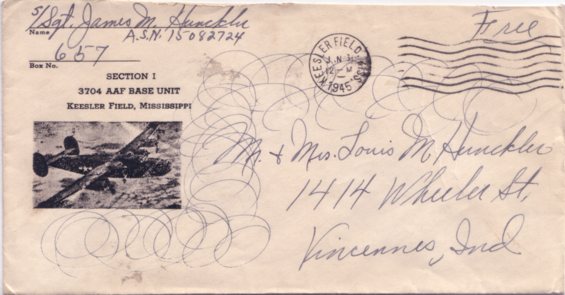 S/Sgt. James M. Hunckler
Name
A.S.N. 15082724
657
Box No.
SECTION I
3704 AAF BASE UNIT
KEESLER FIELD, MISSISSIPPI
KEESLER FIELD, MISS.
1945
Free
Mr. & Mrs. Louis M. Hunckler
1414 Wheeler St.
Vincennes, Ind